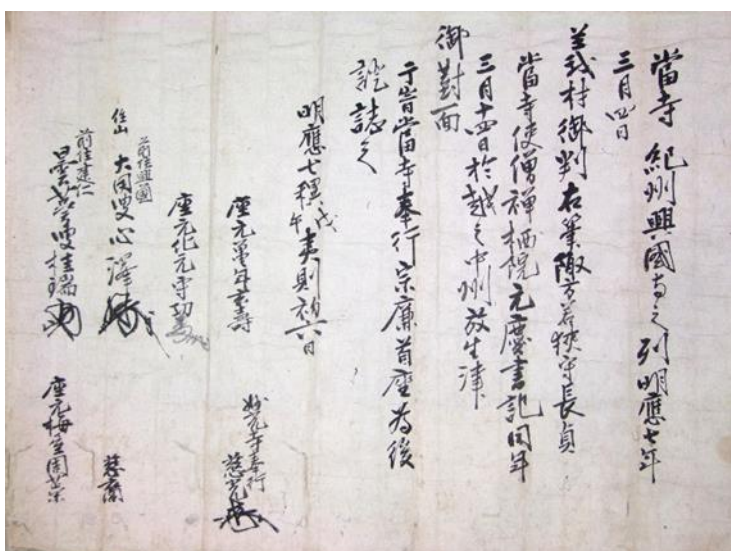 當寺紀州興國寺之列明應七年
三月四日
義材御判右筆諏方若狹守長貞
當寺使僧禅栖院元慶書記同年
三月十四日於越之中州放生津
御對面
于旹當寺奉行宗廉首座為後
證誌之
明應七稔戊午夷則初六日
妙光寺奉行
座元
座元化元守功
慈
前住興國
住山 大同叟心澤
前住建仁
叟桂瑞
座元梅